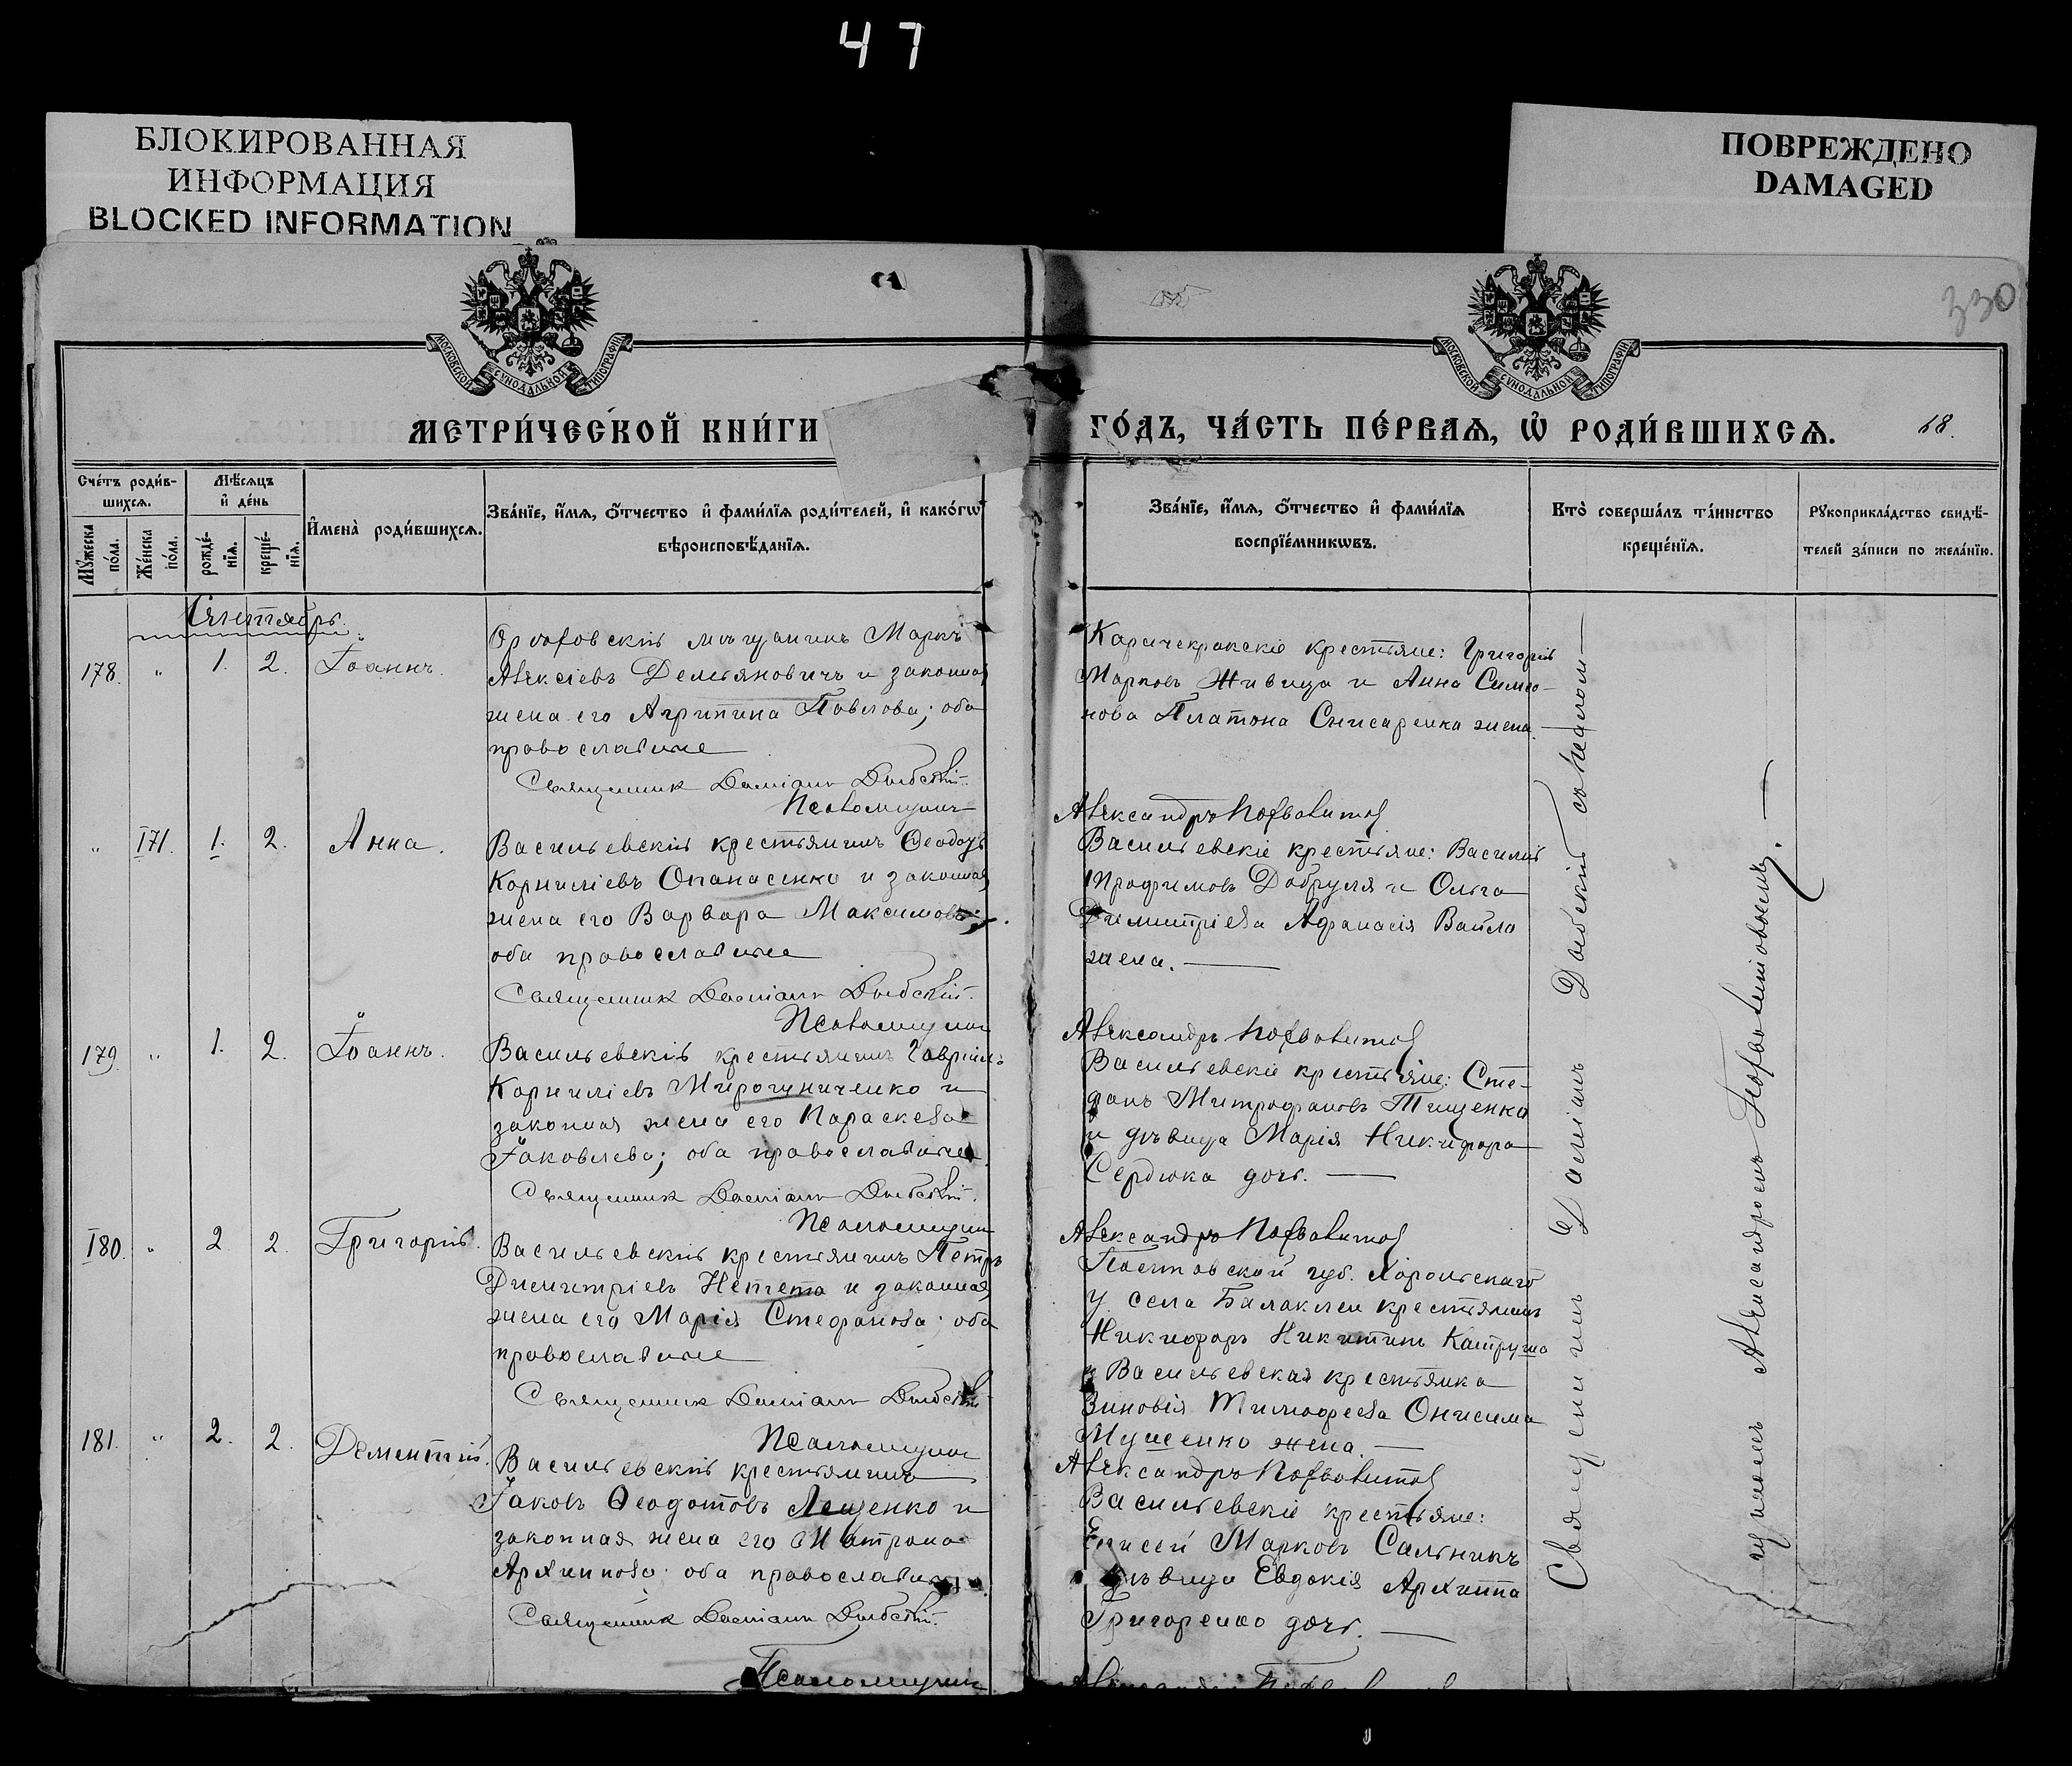 47
БЛОКИРОВАННАЯ
ИНФОРМАЦИЯ
BLOCKED INFORMATION
ПОВРЕЖДЕНО
DAMAGED
330
МОСКОВСКОЙ СѴНОДАЛЬНОЙ ТИПОГРАФІИ
МОСКОВСКОЙ СѴНОДАЛЬНОЙ ТИПОГРАФІИ
МЕТРИ́ЧЕСКОЙ КНИ́ГИ
ГО́ДЪ, ЧА́СТЬ ПЕ́РВАѦ, Ѡ҆ РОДИ́ВШИХСѦ.
18.
Сче́тъ роди́в-
шихсѧ.
Мѣ́сѧцъ
и҆ де́нь
Мꙋ́жеска по́ла.
Же́нска по́ла.
рожде́-нїѧ.
креще́-нїѧ.
И҆мена̀ роди́вшихсѧ.
Зва́нїе, и҆́мѧ, ѻ҆́тчество и҆ фами́лїѧ роди́телей, и҆ како́гѡ
вѣроисповѣ́данїѧ.
Зва́нїе, и҆́мѧ, ѻ҆́тчество и҆ фами́лїѧ
воспрїе́мникѡвъ.
Кто̀ соверша́лъ та́инство
креще́нїѧ.
Рꙋкоприкла́дство свидѣ́-
телей за́писи по жела́нїю.
Сентябрь.
178. " 1. 2. Іоаннъ.
Ореховскій мѣщанинъ Маркъ
Алексіевъ Демьяновичъ и законная
жена его Агрипина Павлова; оба
православные
Священникъ Даміанъ
Псаломщикъ
Карачекракскіе крестьяне: Григорій
Марковъ Живица и Анна Симео-
нова Платона Снисаренка жена.
Александръ
" 171. 1. 2. Анна.
Васильевскій крестьянинъ Ѳеодоръ
Корниліевъ Опанасенко и законная
жена его Варвара Максимова;
оба православные
Священникъ Даміанъ
Псаломщикъ
Васильевскіе крестьяне: Василій
Трофимовъ Добруля и Ольга
Димитріева Афанасія Вайло
жена.
Александръ
179. " 1. 2. Іоаннъ.
Васильевскій крестьянинъ Гавріилъ
Корниліевъ Мирошниченко и
законная жена его Параскева
Іаковлева; оба православные
Священникъ Даміанъ
Псаломщикъ
Васильевскіе крестьяне: Сте-
фанъ Митрофановъ Тищенко
и дѣвица Марія Никифора
Сердюка дочь.
Александръ
180. " 2 2. Григорій.
Васильевскій крестьянинъ Петръ
Димитріевъ Непета и законная
жена его Марія Стефанова; оба
православные
Священникъ Даміанъ
Псаломщикъ
Полтовской губ. Хорольскаго
у. села Балаклеи крестьянинъ
Никифоръ Никитинъ Катруша
и Васильевская крестьянка
Зиновія Тимофеева Онисима
Мушенко жена.
Александръ
181. " 2. 2. Дементій.
Васильевскій крестьянинъ
Іаковъ Ѳеодотовъ Лещенко и
законная жена его Матрона
Архиппова; оба православные
Священникъ Даміанъ
Псаломщикъ
Васильевскіе крестьяне:
Елисей Марковъ Сальникъ
и дѣвица Евдокія Архиппа
Григоренко дочь.
Священникъ Даміанъ
съ псалом-
щикомъ Александромъ